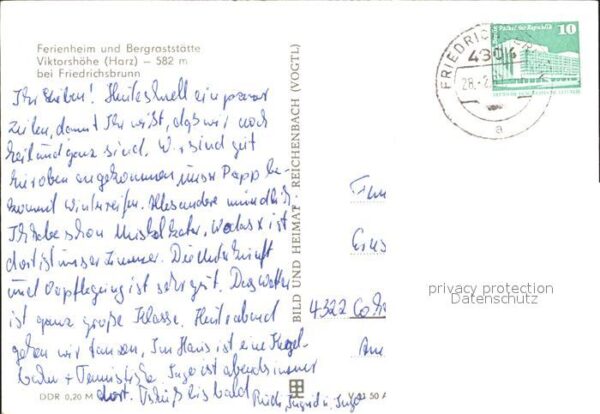 Ferienheim und Bergraststätte
Viktorshöhe (Harz) – 582 m
bei Friedrichsbrunn
Ihr Lieben! Heute schnell ein paar
Zeilen, damit Ihr wißt, daß wir noch
heil und ganz sind. Wir sind gut
hier oben angekommen unser Papp be-
kommt Winterreifen. Alles andere mündlich
Ich habe schon Muskelkater, wo das x ist
dort ist unser Zimmer. Die Unterkunft
und Verpflegung ist sehr gut. Das Wetter
ist ganz große Klasse. Heute abend
gehen wir tanzen. Im Haus ist eine Kegel-
bahn + Tennistische. Ingo ist abends immer
dort. Tschüß bis bald
Ruth, Ingrid u. Ingo
DDR 0,20 M
BILD UND HEIMAT · REICHENBACH (VOGTL)
V 11 50 A
FRIEDRICHSBRUNN
4306
28.-2.
a
Palast der Republik
10
4322
privacy protection
Datenschutz